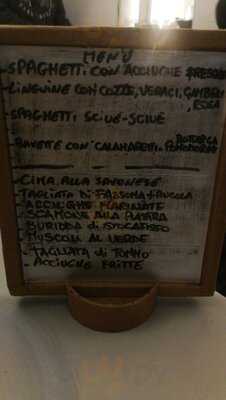 MENÙ
-SPAGHETTI CON ACCIUGHE FRESCHE
-LINGUINE CON COZZE, VERACI, GAMBERI,
-SPAGHETTI SCIUÈ-SCIUÈ
BOTTARGA
-BAVETTE CON CALAMARETTI- POMODORO
-CIMA ALLA SAVONESE
-TAGLIATA DI FASSONA + RUCOLA
-ACCIUGHE MARINATE
-SCAMONE ALLA PIASTRA
-BURIDDA DI STOCCAFISSO
-MUSCOLI AL VERDE
-TAGLIATA di TONNO
-ACCIUGHE FRITTE